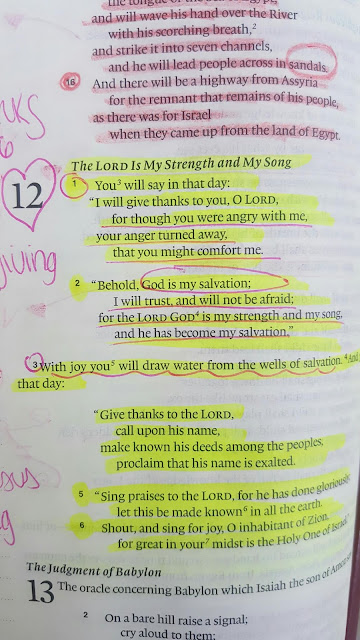 the tongue of the
and will wave his hand over the River
with his scorching breath,2
and strike it into seven channels,
and he will lead people across in sandals.
16 And there will be a highway from Assyria
for the remnant that remains of his people,
as there was for Israel
when they came up from the land of Egypt.
The LORD Is My Strength and My Song
12
1 You3 will say in that day:
“I will give thanks to you, O LORD,
for though you were angry with me,
your anger turned away,
that you might comfort me.
2 “Behold, God is my salvation;
I will trust, and will not be afraid;
for the LORD GOD4 is my strength and my song,
and he has become my salvation.”
3 With joy you5 will draw water from the wells of salvation. 4 And
that day:
“Give thanks to the LORD,
call upon his name,
make known his deeds among the peoples,
proclaim that his name is exalted.
5 “Sing praises to the LORD, for he has done gloriously;
let this be made known6 in all the earth.
6 Shout, and sing for joy, O inhabitant of Zion,
for great in your7 midst is the Holy One of Israel.”
The Judgment of Babylon
13 The oracle concerning Babylon which Isaiah the son of Amoz
2 On a bare hill raise a signal;
cry aloud to them;